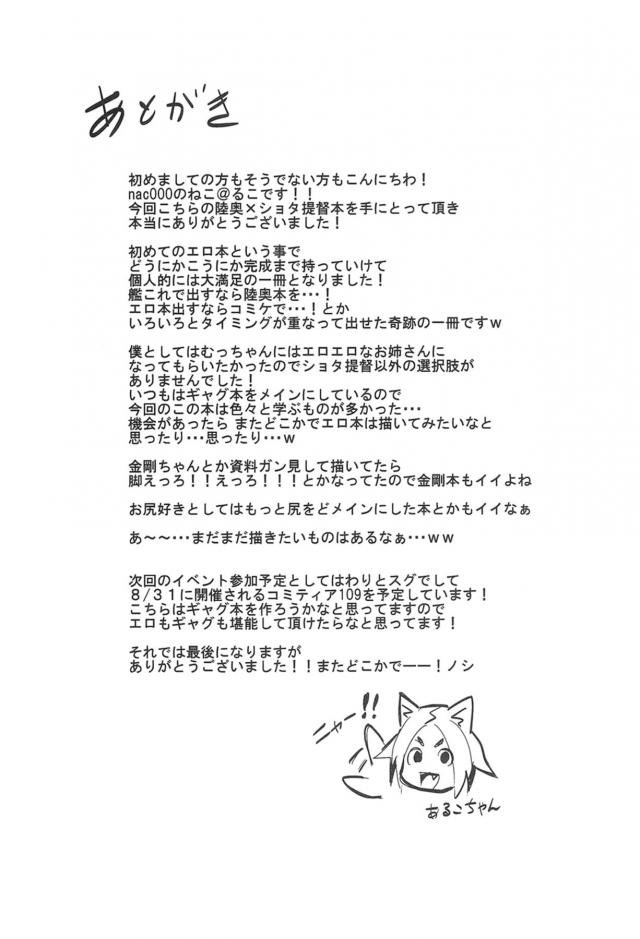 あとがき
初めましての方もそうでない方もこんにちわ！
nac000のねこ＠るこです！！
今回こちらの陸奥×ショタ提督本を手にとって頂き
本当にありがとうございました！
初めてのエロ本という事で
どうにかこうにか完成まで持っていけて
個人的には大満足の一冊となりました！
艦これで出すなら陸奥本を･･･！
エロ本出すならコミケで･･･！とか
いろいろとタイミングが重なって出せた奇跡の一冊ですｗ
僕としてはむっちゃんにはエロエロなお姉さんに
なってもらいたかったのでショタ提督以外の選択肢が
ありませんでした！
いつもはギャグ本をメインにしているので
今回のこの本は色々と学ぶものが多かった･･･
機会があったら またどこかでエロ本は描いてみたいなと
思ったり･･･思ったり･･･ｗ
金剛ちゃんとか資料ガン見して描いてたら
脚えっろ！！えっろ！！！とかなってたので金剛本もイイよね
お尻好きとしてはもっと尻をどメインにした本とかもイイなぁ
あ～～･･･まだまだ描きたいものはあるなぁ･･･ｗｗ
次回のイベント参加予定としてはわりとスグでして
８/３１に開催されるコミティア109を予定しています！
こちらはギャグ本を作ろうかなと思ってますので
エロもギャグも堪能して頂けたらなと思ってます！
それでは最後になりますが
ありがとうございました！！またどこかでーー！ノシ
ニャー!!
あるこちゃん